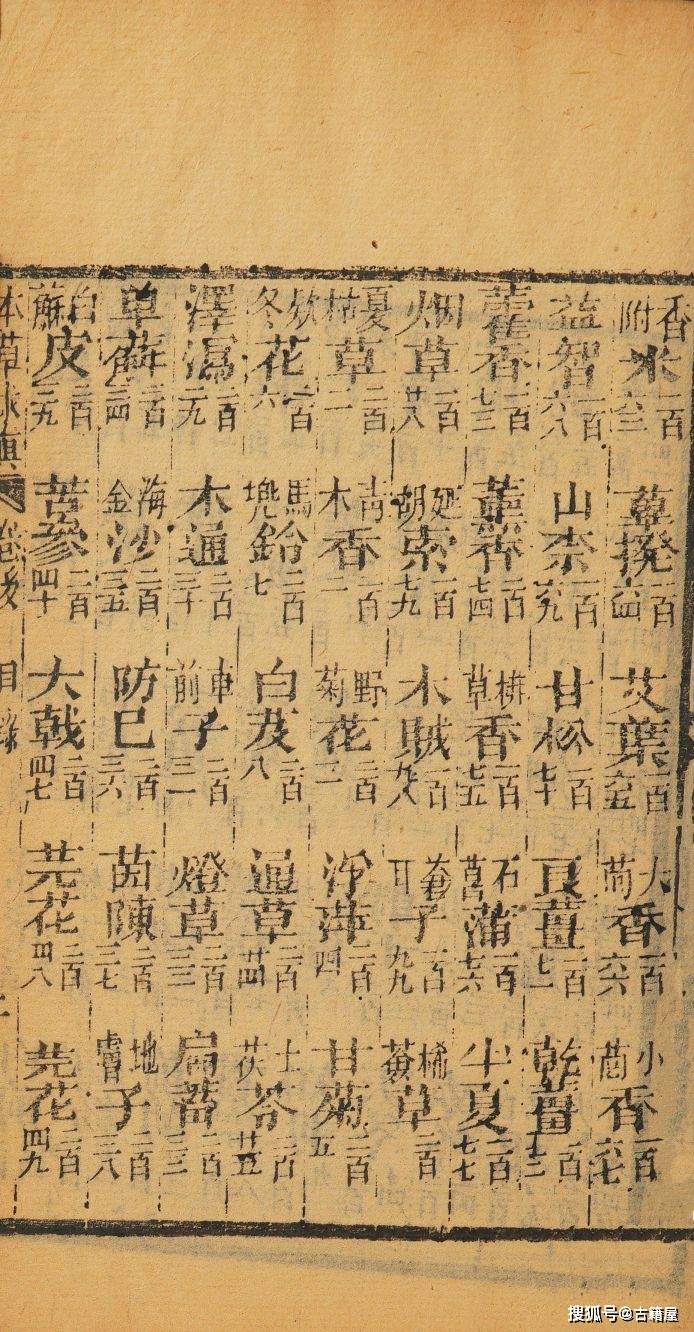 香附米一百六三 蓽撥一百六四 艾葉一百六五 大茴香一百六六 小茴香一百六七
益智一百六八 山柰一百六九 甘松一百七十 良薑一百七一 乾薑一百七二
藿香一百七三 薰香一百七四 排草香一百七五 石菖蒲一百七六 半夏一百七七
烟草一百廿八 延胡索一百七九 木賊一百九八 蒼耳子一百九九 稀薟草二百
夏枯草二百一 青木香二百二 野菊花二百三 淨萍二百四 甘菊二百五
欵冬花二百六 馬兜鈴二百七 白芨二百八 通草二百廿四 土茯苓二百廿五
澤瀉二百二九 木通二百三十 車前子二百三一 燈草二百三二 扁蓄二百三三
草薢二百三四 海金沙二百三五 防巳二百三六 茵陳二百三七 地膚子二百三八
白蘚皮二百三九 苦參二百四十 大戟二百四七 芫花二百四八 芫花二百四九
本草求真 目錄
搜狐号@古籍屋